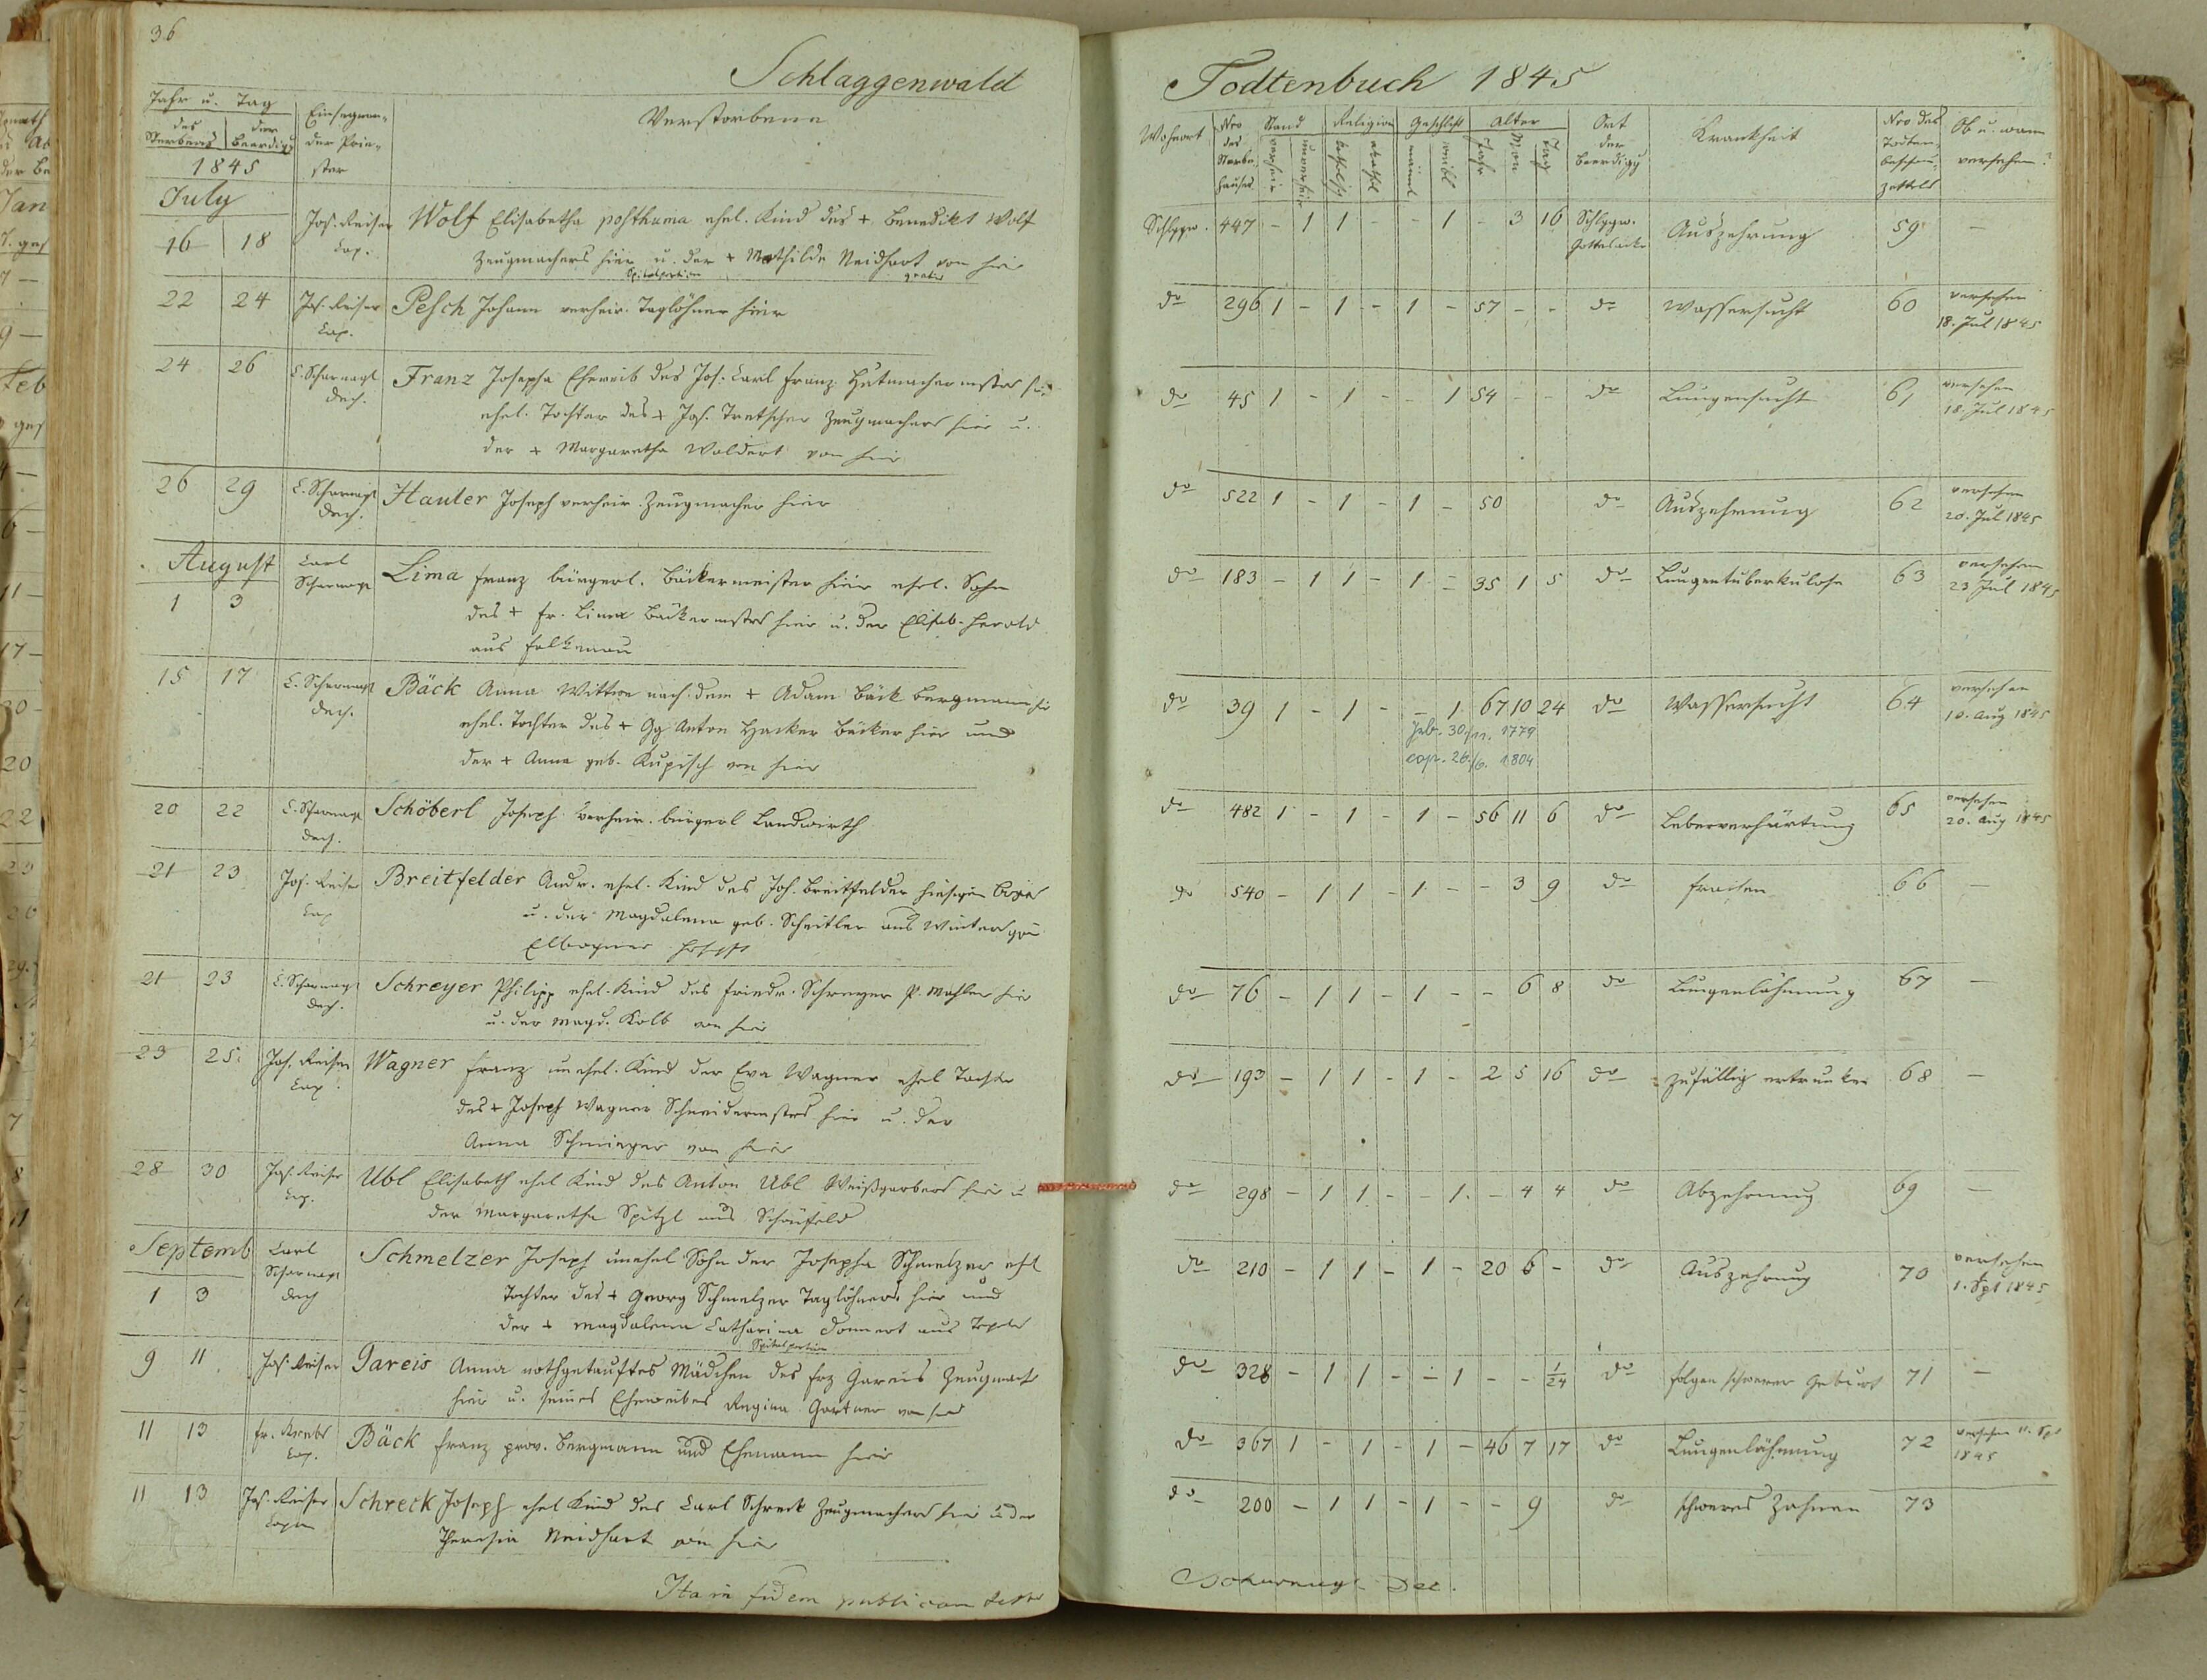 36
Schlaggenwald
Jahr u. Tag
des Sterbens
der Beerdigg
1845
Einsegnender Priester
Verstorbene
July
16 18 Jos. Reiser Cap. Wolf Elisabetha posthuma ehel. Kind des + Benedikt Wolf
Zeugmachers hier u. der + Mathilde Neidhart von hier
Spitalportion gratis
22 24 Jos. Reiser Cap. Pesch Johann verheir. Taglöhner hier
24 26 C. Scharnagl Dech. Franz Josepha Eheweib des Jos. Carl Franz Hutmachermstrs hier
ehel. Tochter des + Jos. Tretscher Zeugmachers hier u.
der + Margaretha Waldert von hier
26 29 C. Scharnagl Dech. Hauler Joseph verheir. Zeugmacher hier
August
1 3 Carl Scharnagl Lima Franz bürgerl. Bäckermeister hier ehel. Sohn
des + Fr. Lima Bäckermstrs hier u. der Elisab. Herold
aus Falkenau
15 17 C. Scharnagl Dech. Bäck Anna Wittwe nach dem + Adam Bäck Bergmann hier
ehel. Tochter des + Gg Anton Hacker Bäcker hier und
der + Anna geb. Kupisch von hier
20 22 C. Scharnagl Dech. Schöberl Joseph verheir. bürgerl Landwirth
21 23 Jos. Reiser Cap Breitfelder Andr. ehel. Kind des Joh. Breitfelder hiesigen
u. der Magdalena geb. Scheitler aus Wintergrün
Elbogner
21 23 C. Scharnagl Dech. Schreyer Philipp ehel. Kind des Friedr. Schreyer P. Mahler hier
u. der Magd. Kolb von hier
23 25. Jos. Reiser Cap. Wagner Franz unehel. Kind der Eva Wagner ehel Tochter
des + Joseph Wagner Schneidermstrs hier u. der
Anna Schmieger von hier
28 30 Jos. Reiser Cap. Ubl Elisabeth ehel Kind des Anton Ubl Weißgerbers hier u
der Margaretha Spitzl aus Schönfeld
Septemb
1 3 Carl Scharnagl Dech Schmelzer Joseph unehel Sohn der Josepha Schmelzer ehl
Tochter des + Georg Schmelzer Taglöhners hier und
der + Magdalena Catharina Donnert aus Tepl
Spitalportion
9 11 Jos. Reiser Gareis Anna nothgetauftes Mädchen des Frz Gareis Zeugmach
hier u. seines Eheweibes Regina Gartner von hier
11 13 Fr. Krebs Cap. Bäck Franz prov. Bergmann und Ehemann hier
11 13 Jos. Reiser Caplan Schreck Joseph ehel Kind des Carl Schreck Zeugmachers hier u der
Theresia Neidhart von hier
Ita in fidem publicam testor
Todtenbuch 1845
Wohnort
Nro des Sterbehauses
Stand
verheir
unverheir
Religion
katholisch
akathol
Geschlecht
männl
weibl
Alter
Jahr
Mon
Tag
Ort der Beerdigg
Krankheit
Nro des Todtenbeschauzettels
Ob u. wann versehen?
Schlggw. 447 - 1 1 - - 1 - 3 16 Schlggw. Gottesacker Auszehrung 59 -
do 296 1 - 1 - 1 - 57 - - do Wassersucht 60 versehen 18. Jul 1845
do 45 1 - 1 - - 1 54 - - do Lungensucht 61 versehen 18. Jul 1845
do 522 1 - 1 - 1 - 50 do Auszehrung 62 versehen 20. Jul 1845
do 183 - 1 1 - 1 - 35 1 5 do Lungentuberkulose 63 versehen 23 Jul 1845
do 39 1 - 1 - - 1 67 10 24 do Wassersucht 64 versehen 10. Aug 1845
geb. 30./11. 1779
cop. 26./6. 1804
do 482 1 - 1 - 1 - 56 11 6 do Leberverhärtung 65 versehen 20. Aug 1845
do 540 - 1 1 - 1 - - 3 9 do Fraisen 66 -
do 76 - 1 1 - 1 - - 6 8 do Lungenlähmung 67 -
do 193 - 1 1 - 1 - 2 5 16 do zufällig ertrunken 68 -
do 298 - 1 1 - - 1. - 4 4 do Abzehrung 69 -
do 210 - 1 1 - 1 - 20 6 - do Auszehrung 70 versehen 1. Spt 1845
do 328 - 1 1 - - 1 - - 1/24 do Folgen schwerer Geburt 71 -
do 367 1 - 1 - 1 - 46 7 17 do Lungenlähmung 72 versehen 11. Spt 1845
do 200 - 1 1 - 1 - - 9 do schweres Zahnen 73
CScharnagl Dec.